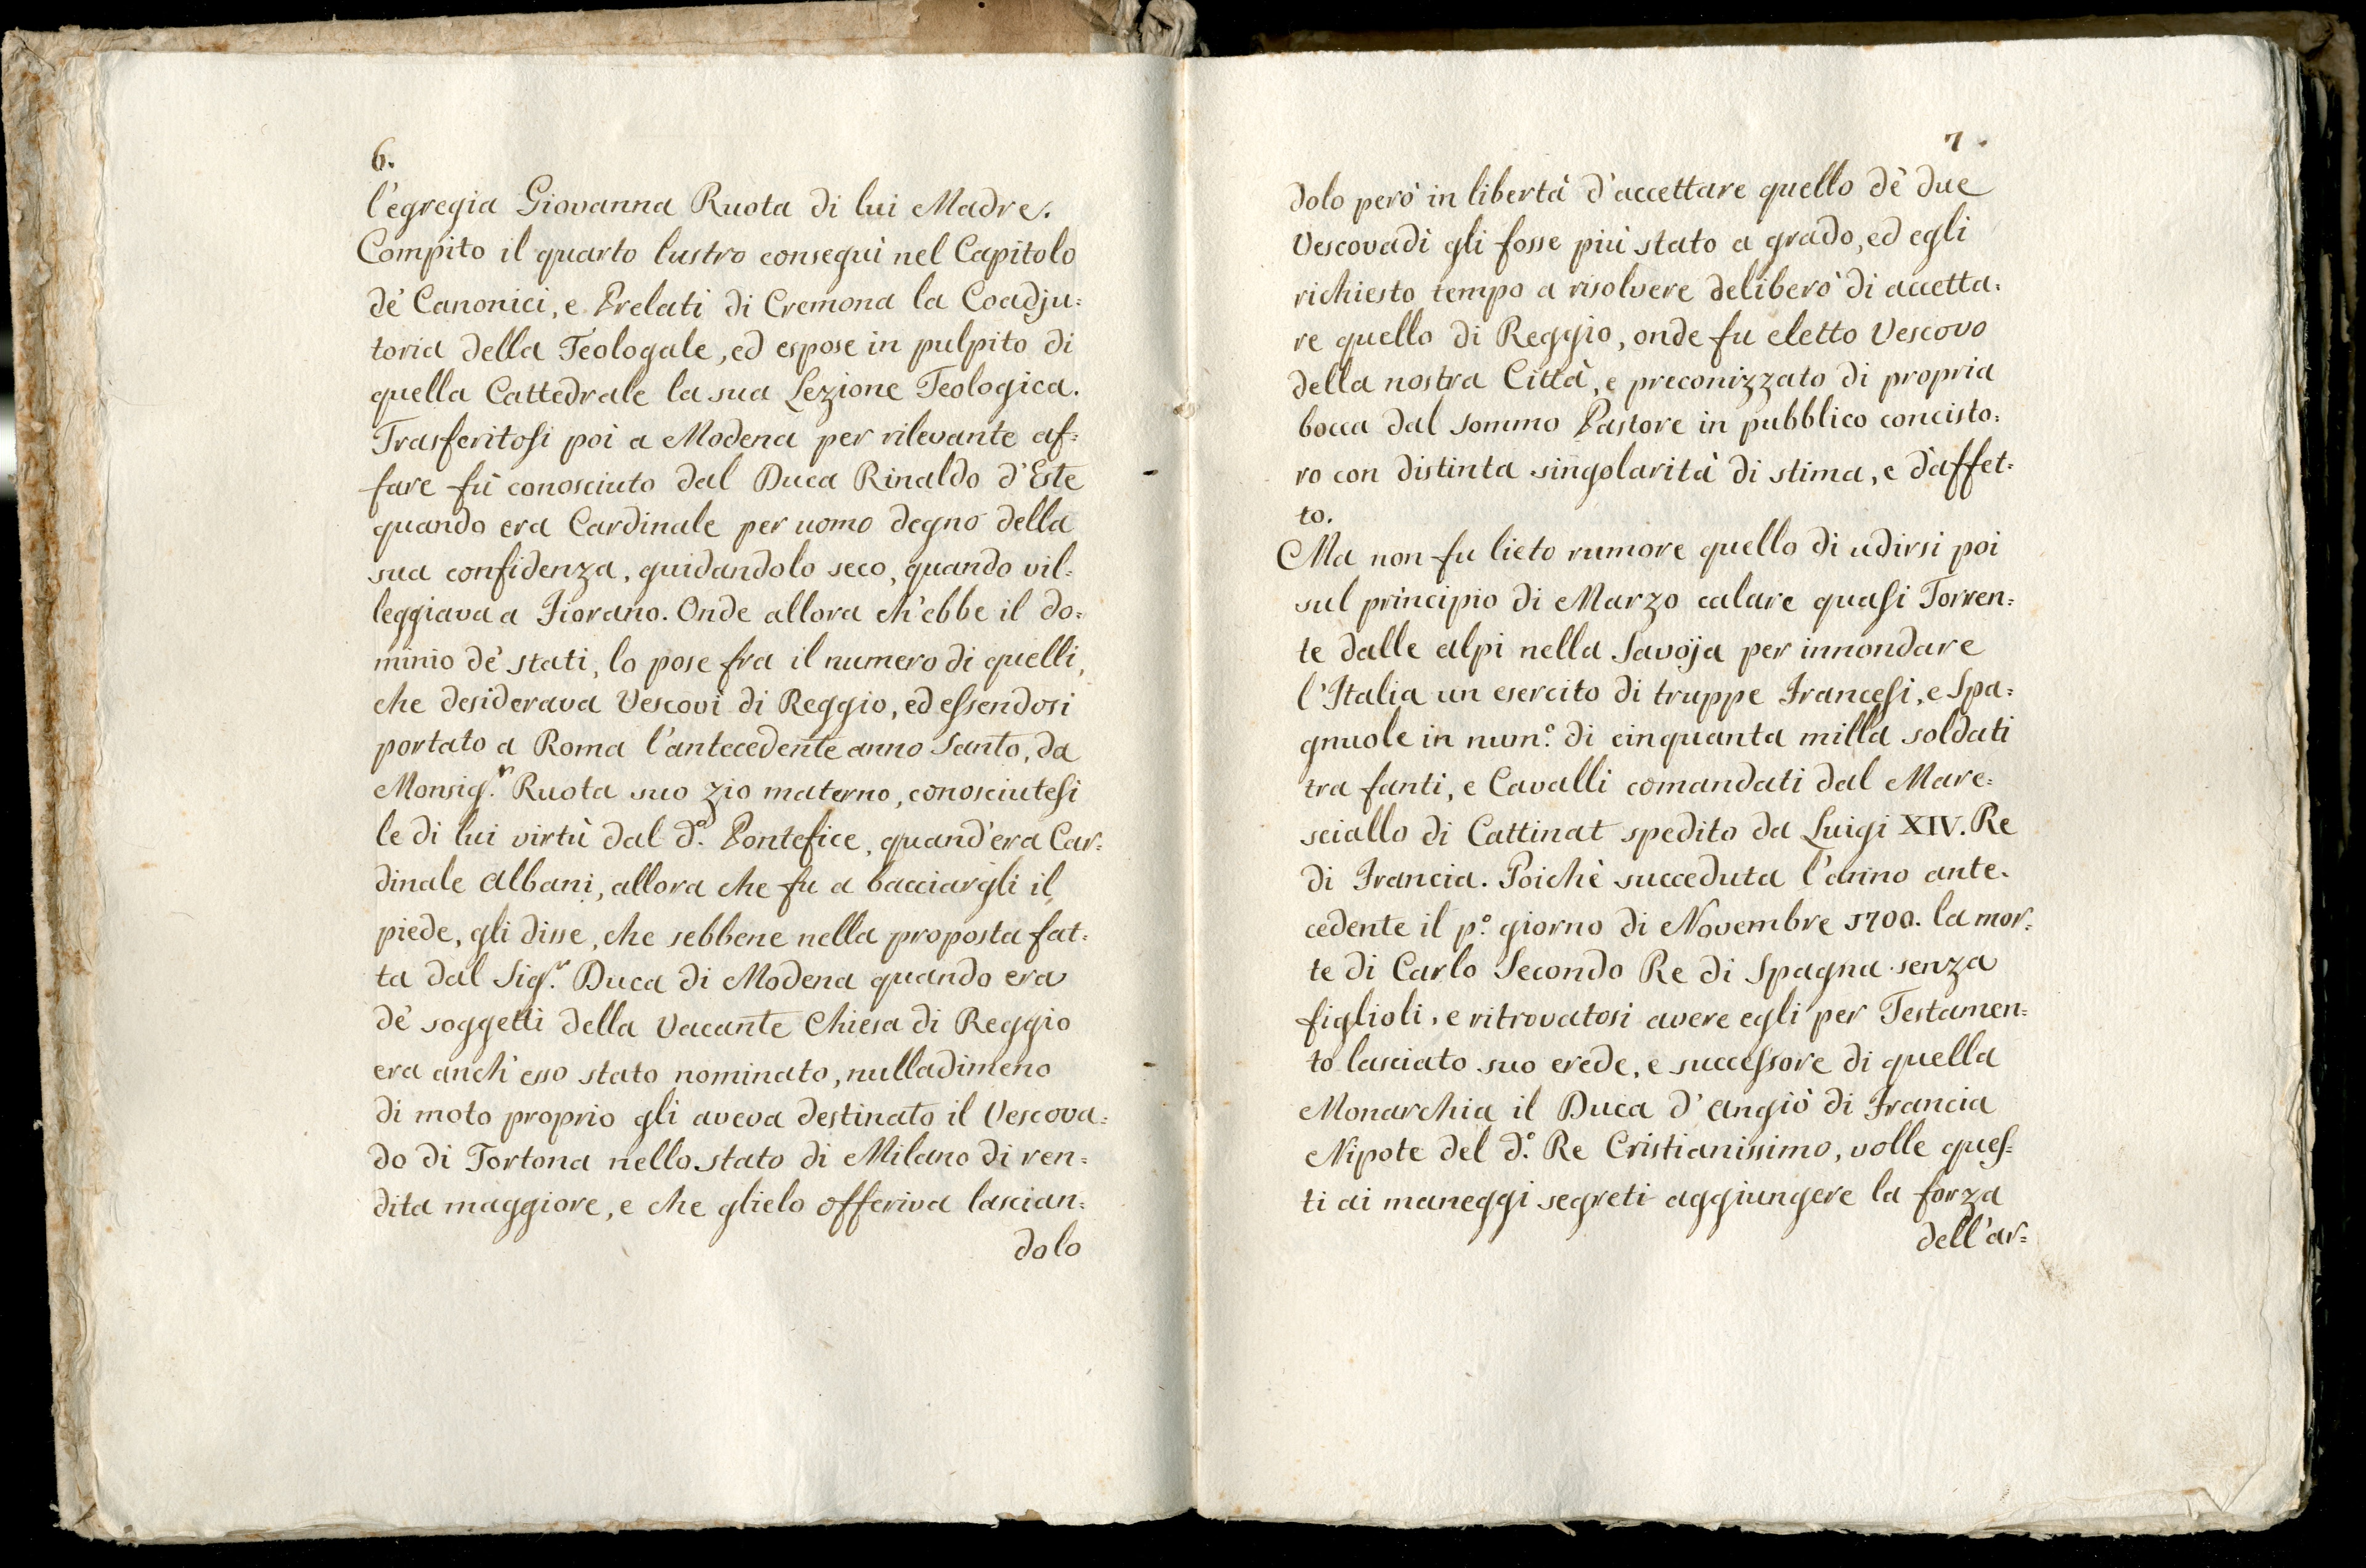 6.
l'egregia Giovanna Ruota di lui Madre.
Compito il quarto lustro conseguì nel Capitolo
de' Canonici, e Prelati di Cremona la Coadju=
toria della Teologale, ed espose in pulpito di
quella Cattedrale la sua Lezione Teologica.
Trasferitosi poi a Modena per rilevante af=
fare fù conosciuto dal Duca Rinaldo d'Este
quando era Cardinale per uomo degno della
sua confidenza, guidandolo seco, quando vil=
leggiava a Fiorano. Onde allora ch'ebbe il do=
minio de' stati, lo pose fra il numero di quelli,
che desiderava Vescovi di Reggio, ed essendosi
portato a Roma l'antecedente anno Santo, da
Monsig.r Ruota suo zio materno, conosciutesi
le di lui virtù dal d.o Pontefice, quand'era Car=
dinale Albani, allora che fu a bacciargli il
piede, gli disse, che sebbene nella proposta fat=
ta dal Sig.r Duca di Modena quando era
de' soggetti della Vacante Chiesa di Reggio
era anch'esso stato nominato, nulladimeno
di moto proprio gli aveva destinato il Vescova=
do di Tortona nello stato di Milano di ren=
dita maggiore, e che glielo offeriva lascian=
dolo
7.
dolo però in libertà d'accettare quello de' due
Vescovadi gli fosse più stato a grado, ed egli
richiesto tempo a risolvere deliberò di accetta=
re quello di Reggio, onde fu eletto Vescovo
della nostra Città, e preconizzato di propria
bocca dal sommo Pastore in pubblico concisto=
ro con distinta singolarità di stima, e d'affet=
to.
Ma non fu lieto rumore quello di udirsi poi
sul principio di Marzo calare quasi Torren=
te dalle alpi nella Savoja per innondare
l'Italia un esercito di truppe Francesi, e Spa=
gnuole in num.o di cinquanta milla soldati
tra fanti, e Cavalli comandati dal Mare=
sciallo di Cattinat spedito da Luigi XIV. Re
di Francia. Poichè succeduta l'anno ante=
cedente il p.o giorno di Novembre 1700. la mor=
te di Carlo Secondo Re di Spagna senza
figlioli, e ritrovatosi avere egli per Testamen=
to lasciato suo erede, e successore di quella
Monarchia il Duca d'Angiò di Francia
Nipote del d.o Re Cristianissimo, volle ques=
ti ai maneggi segreti aggiungere la forza
dell'ar=